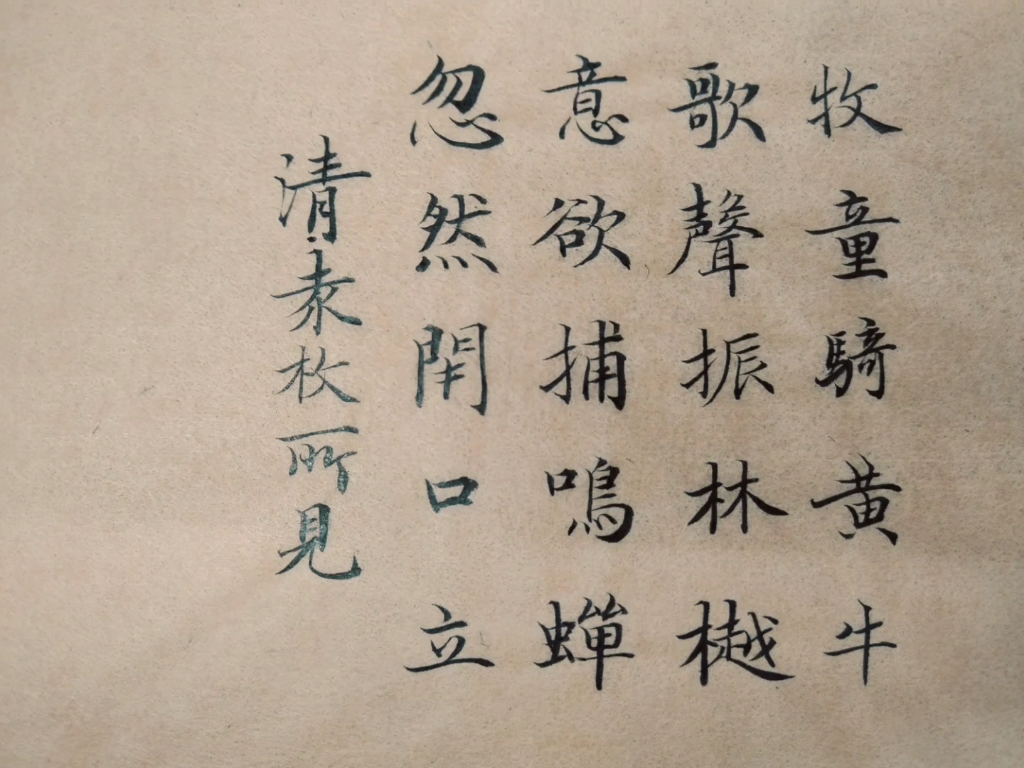 牧童騎黄牛
歌聲振林樾
意欲捕鳴蟬
忽然閉口立
清·袁枚所見